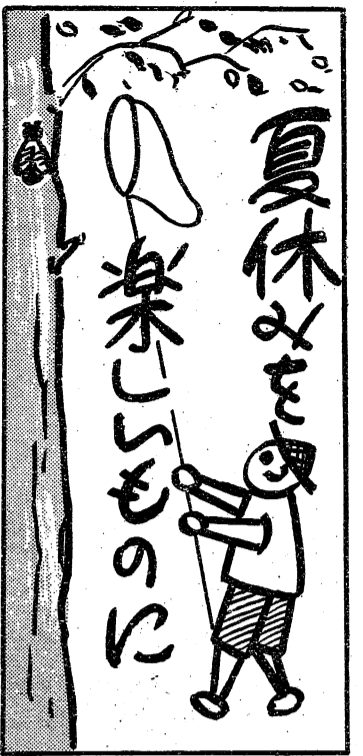 夏休みを
楽しいものに